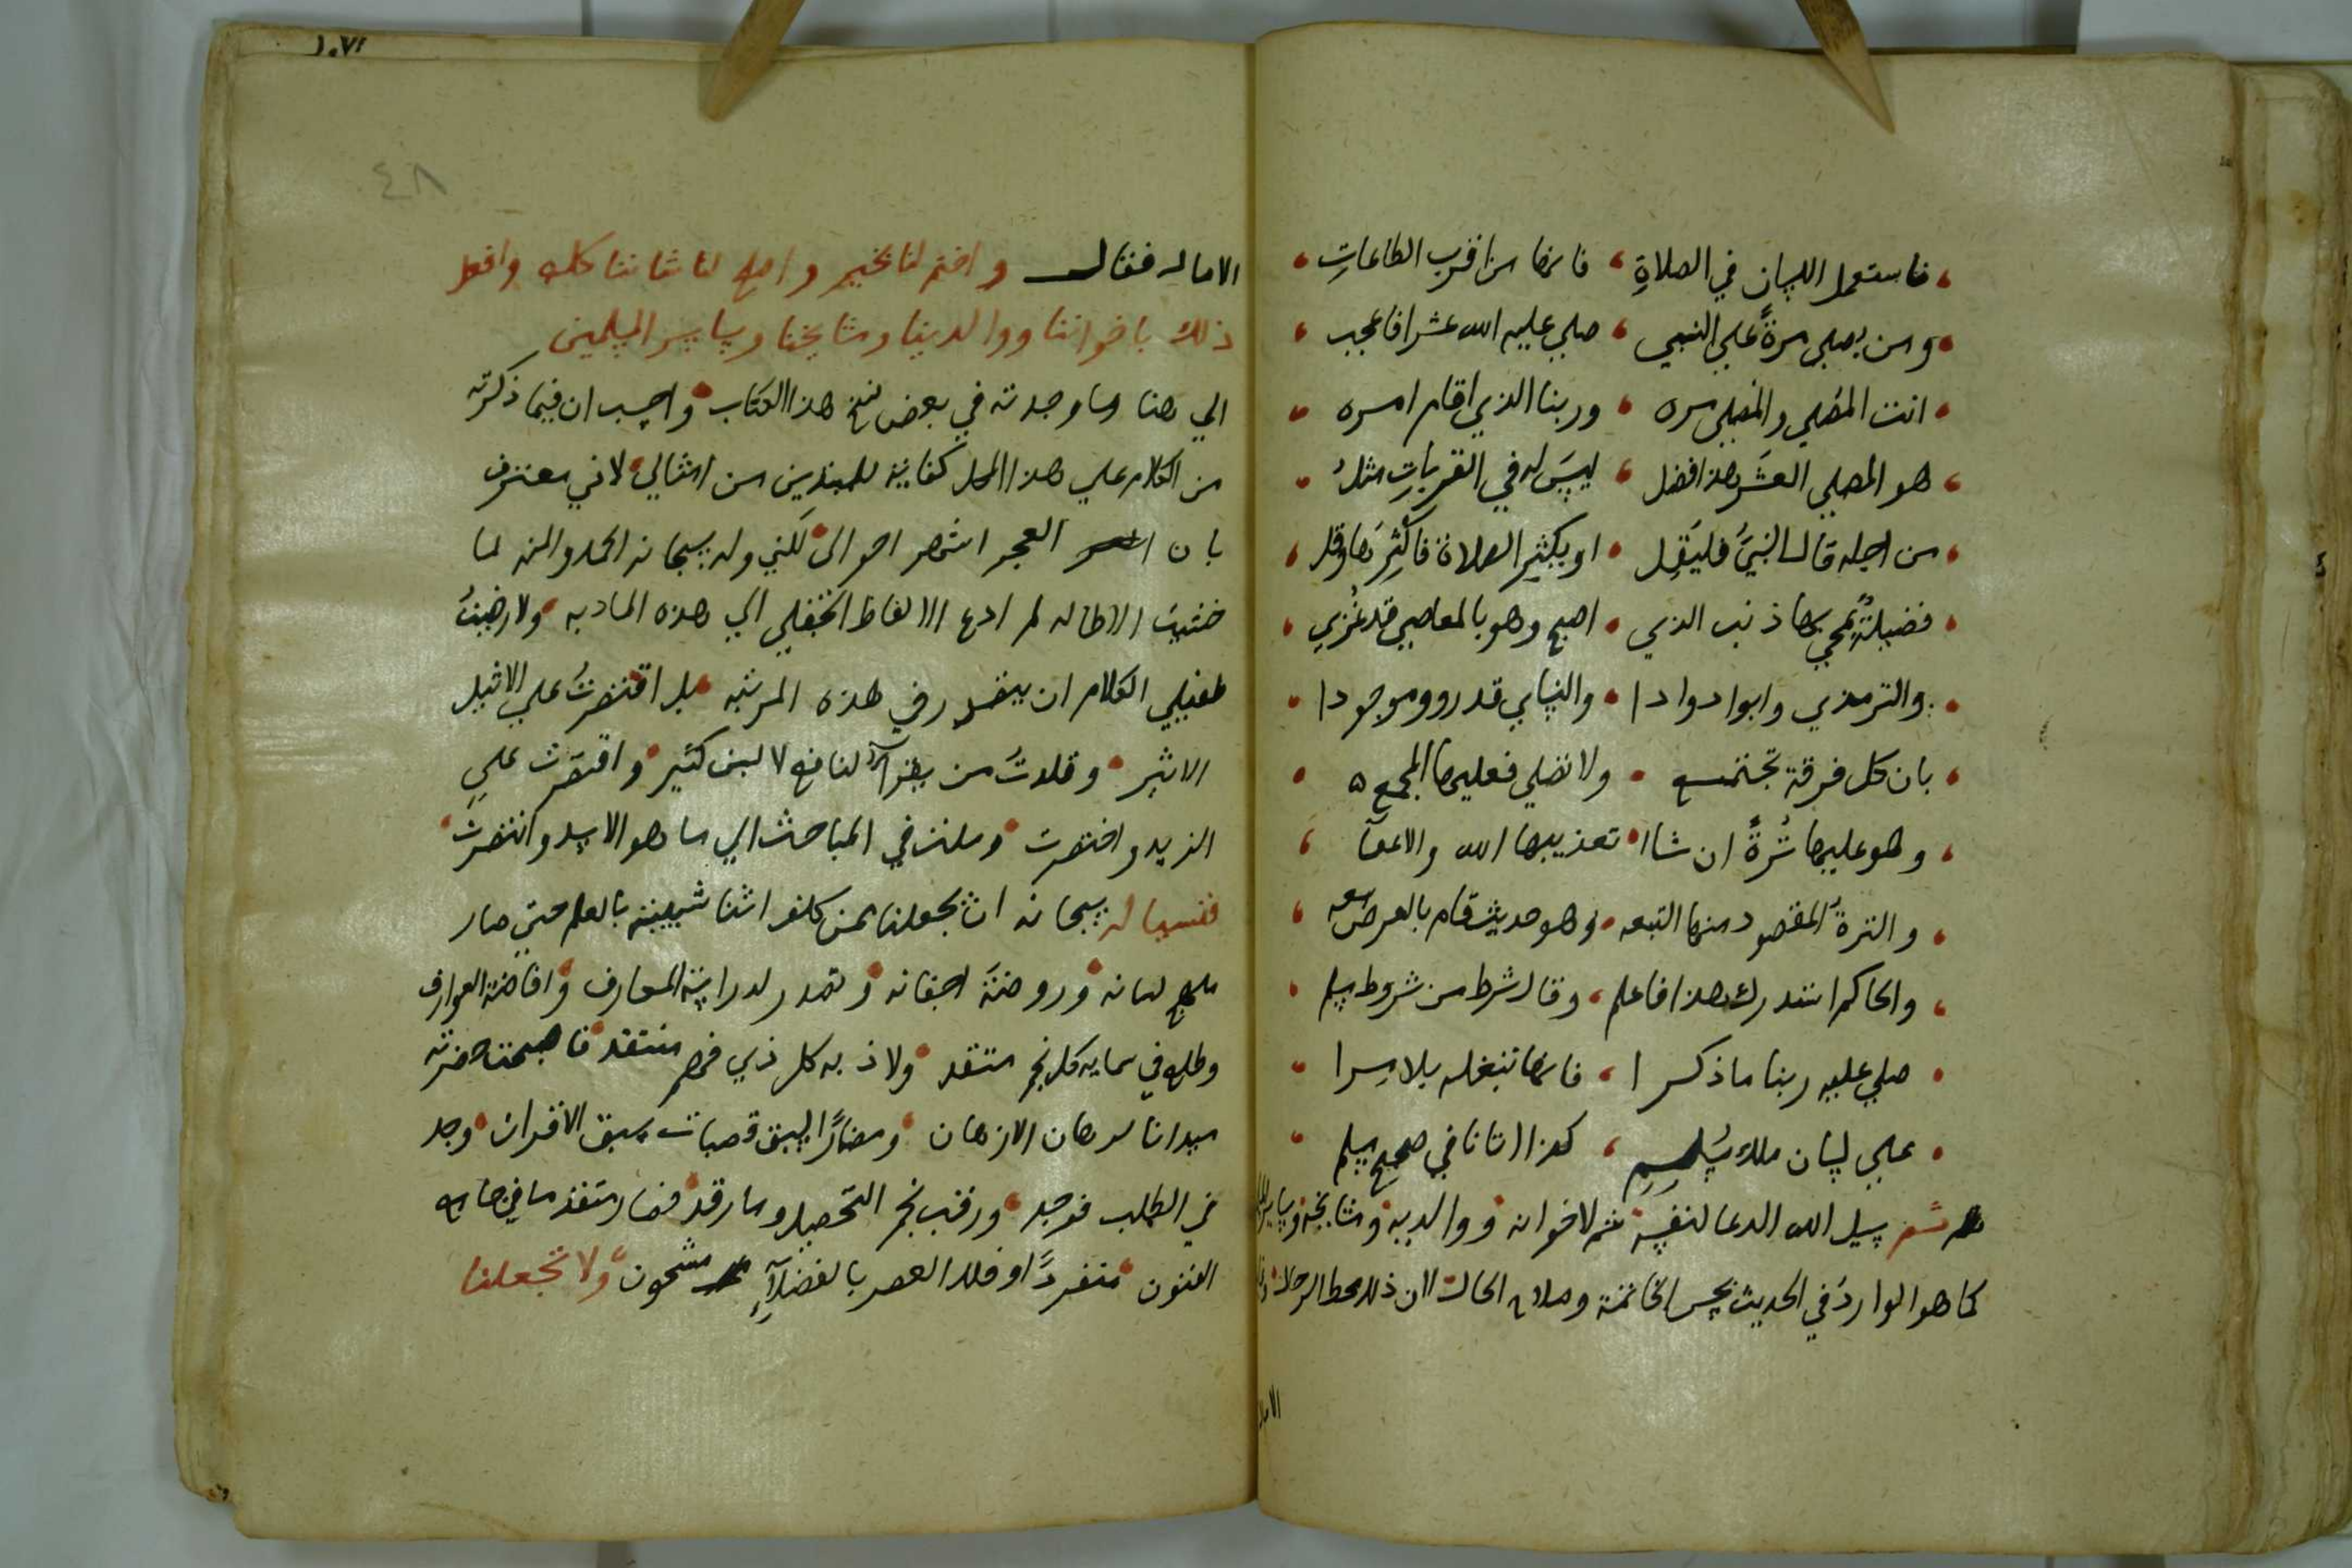 فاستعمل اللسان في الصلاةِ ، فانها من اقرب الطاعاتِ
ومن يصلي مرةً علي النبي ، صلي عليه الله عشرا فاعجب
انت المصلي والمصلي مره ، وربنا الذي اقام امره
هو المصلي العشر هذا افضل ، ليسَ له في القرباتِ مثلُ
من اجله قال النبيَّ فليَقل ، او يكثر الصلاة فاكثرنها وقل
فضيلةً يمحي بها ذنب الذي ، اصبح وهو بالمعاصي قد غُزي
والترمذي وابوا دوادا ، والنساي قد رووه موجودا
بان كل فرقة تجتمع ، ولا تصلي فعليها المجمع
وهو عليها تُرةً ان شاا ، تعذيبها الله والا عفآ
والترةُ المقصود منها التبعه ، وهو حديث قام بالعرض معه
والحاكم استدرك هذا فاعلم ، وقال شرط من شروط مسلم
صلي عليه ربنا ما ذكرا ، فانها تبلغه بلا مرا
علي لسان ملك يُسلم ، كذا اتانا في صحيح مسلم
ثم يسيل الله الدعا لنفسه ثم لاخوانه ووالديه ومشايخه وساير
كما هو الوارد في الحديث بحسن الخاتمة وصلاح الحال اذ ذلك محط الرحال
الامال
١٠٧٢
٤٨
الاماله فقال واختم لنا بخير واصلح لنا شاننا كله وافعل
ذلك باخواننا ووالدينا ومشايخنا وساير المسلمين
الي هنا وما وجدته في بعض نسخ هذا الكتاب واحسب ان فيما ذكرته
من الكلام علي هذا المحل كفاية للمبتدين من امثالي لاني معترف
بان العجر اشهر احوالي لكني وله سبحانه الحمد والمنه لما
خشيت الاطاله لم ادع الالفاظ الجفلي الي هذه المادبه ولا رضيتُ
طفيلي الكلام ان يتصدر في هذه المرتبه بل اقتصرتُ علي الاثيل
الاثير وقلدتُ من يقرآ لنافع لا لبن كثير واقتصرت علي
الزبد واختصرت وملت في المباحث الي ما هو الاسد وانتصرت
فنسياله سبحانه ان يجعلنا ممن كلف اثنا شبيبته بالعلم حتي صار
ملهج لسانه وروضة اجفانه وتصدر لدراية المعارف وافاضة العوارف
وطلع في سمايه كل نجم متقد ولاذ به كل ذي فهم منتقد فاصبحت حضرته
ميدانا لرهان الاذهان ومضمارًا لسبق قصبات سبق الاقران وجد
في الطلب فوجد ورقب نجم التحصيل وما رقد فصار
الفنون منفردًا وفلك العصر بالفضلآءِ مشحون ولا تجعلنا